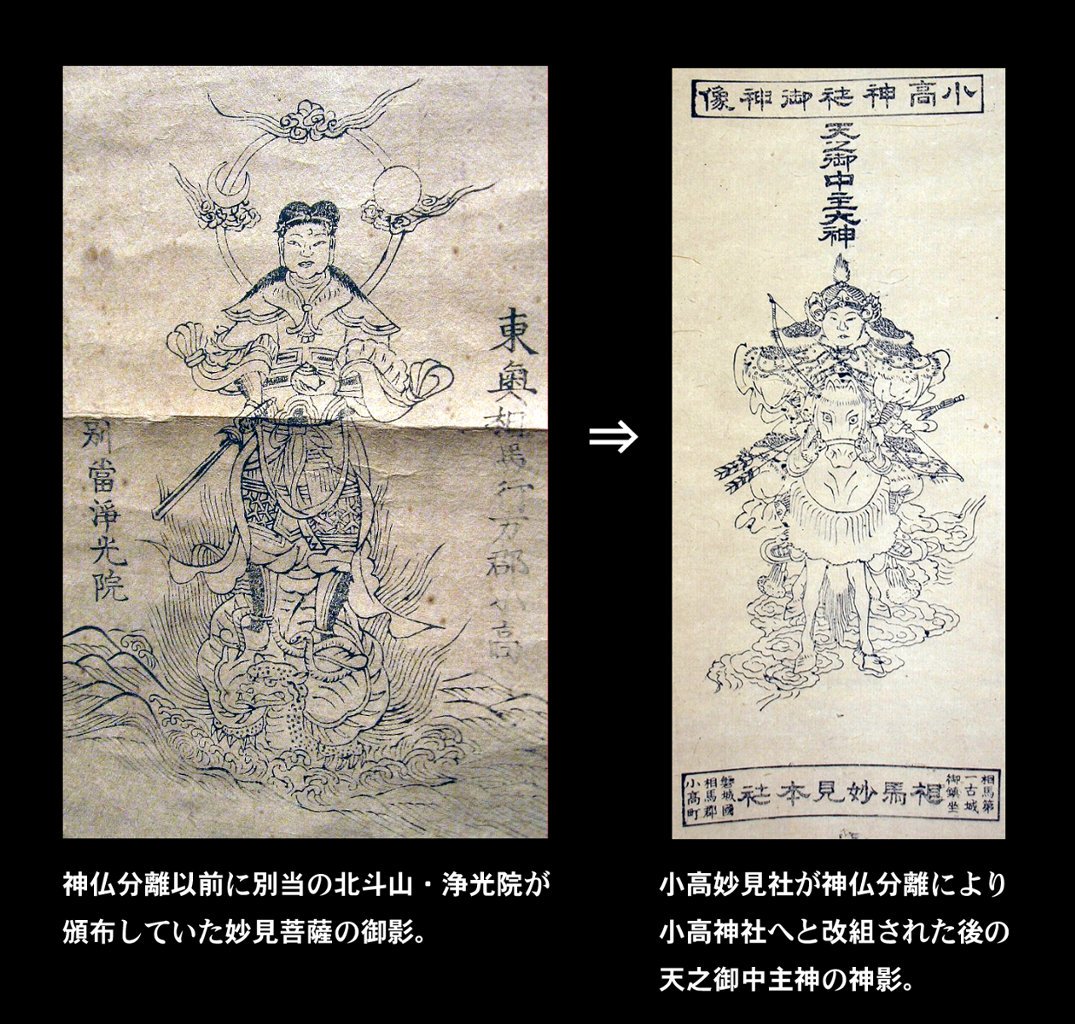 東奥相馬行方郡小高
別當淨光院
⇒
小高神社御神像
天之御中主大神
相馬第
一古城
御鎮坐
相馬妙見本社
磐城國
相馬郡
小高町
神仏分離以前に別当の北斗山・浄光院が
頒布していた妙見菩薩の御影。
小高妙見社が神仏分離により
小高神社へと改組された後の
天之御中主神の神影。